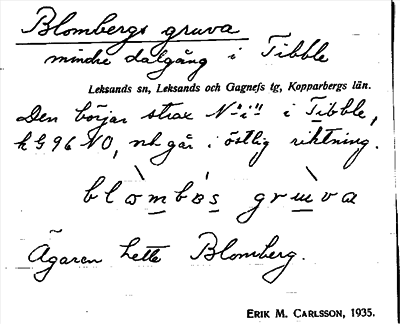 Blombergs gruva
mindre dalgång i Tibble
Leksands sn, Leksands och Gagnefs tg, Kopparbergs län.
Den börjar strax N"i" i Tibble,
k G 96 NO, och går i östlig riktning.
blòmbo̍s grùva
Ägaren hette Blomberg.
ERIK M. CARLSSON, 1935.